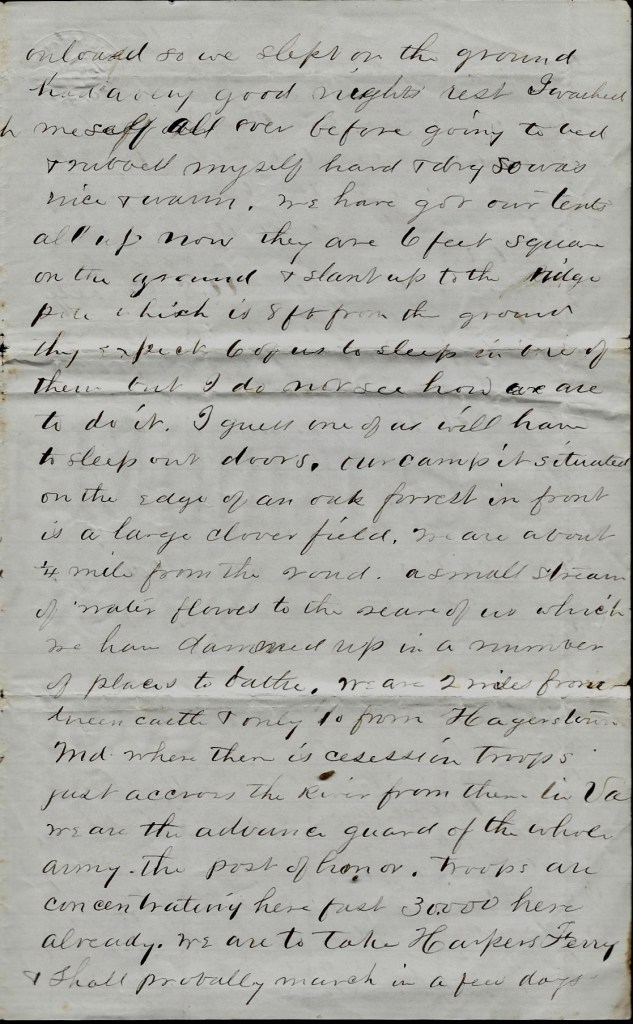 onloaed so we slept on the ground
had a very good nights rest I wached
meself all over before going to bed
& rubbed myself hard & dry so was
nice & warm. We have got our tents
all up now they are 6 feet square
on the ground & slant up to the ridge
pole which is 8 ft from the ground
thy expect 6 of us to sleep in one of
them but I do not see how we are
to do it. I guess one of us will have
to sleep out doors. our camp it situated
on the edge of an oak forrest in front
is a large clover field. We are about
1/4 mile from the road. a small stream
of water flowes to the reare of us which
we have dammed up in a number
of places to bathe. We are 2 miles from
Green castle & only 10 from Hagerstown
Md. where there is cesession troops
just accross the River from them in Va
We are the advance guard of the whole
army. the post of honor. troops are
concentrating here fast 30000 here
already. We are to take Harpers Ferry
& I shall probally march in a few days